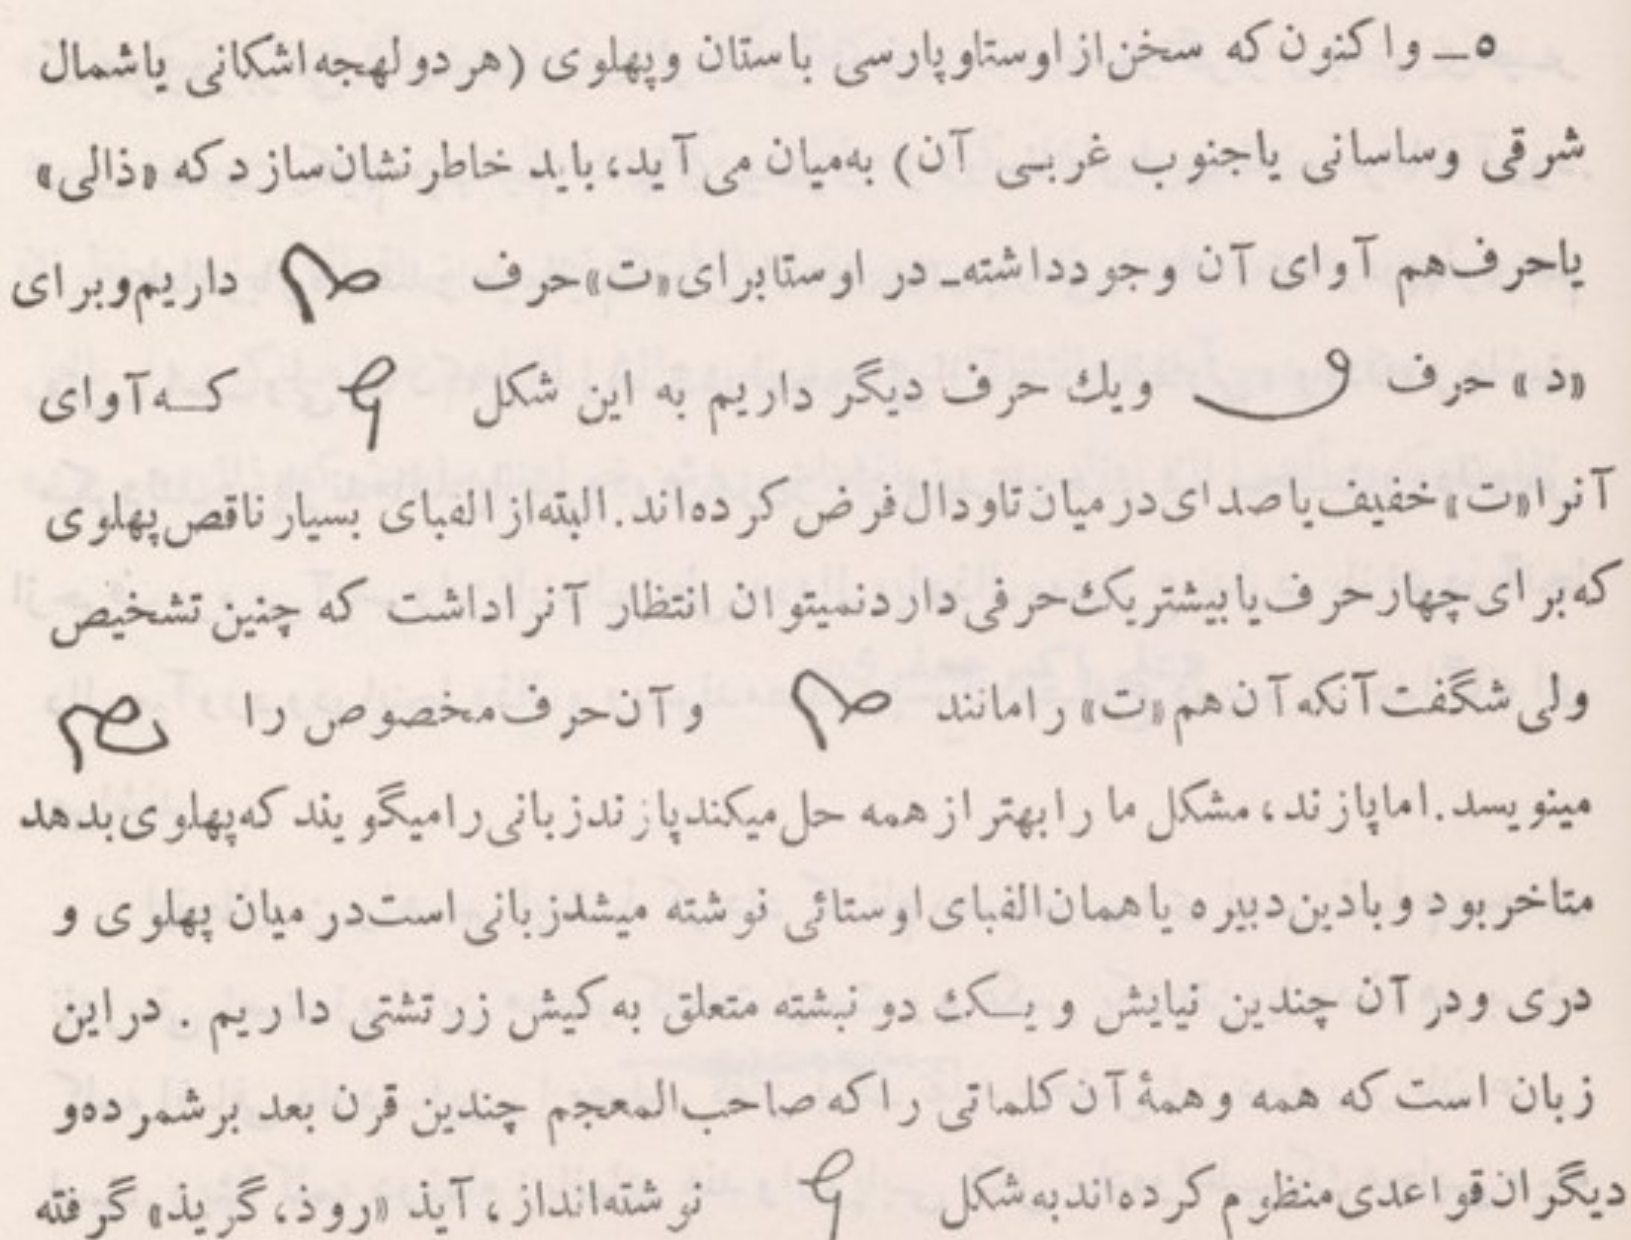 ۵ــ واکنون که سخن از اوستاو پارسی باستان وپهلوی (هر دو لهجه اشکانی یاشمال
شرقی وساسانی یاجنوب غربـی آن) به‌میان می‌آید، باید خاطر نشان‌سازد که «ذالی»
یاحرف‌هم آوای آن وجودداشته‌ـ در اوستا برای «ت» حرف داریم‌وبرای
«د» حرف ویك حرف دیگر داریم به این شکل کــه‌آوای
آنرا «ت» خفیف‌یاصدای‌درمیان‌تاودال‌فرض کرده‌اند. البته‌از الفبای بسیار ناقص پهلوی
که برای چهار حرف یابیشتر یک‌حرفی داردنمیتوان انتظار آنراداشت که چنین تشخیص
ولی شگفت آنکه آن هم «ت» رامانند و آن حرف مخصوص را
مینویسد. اماپازند، مشکل ما رابهتر از همه حل میکندپازندزبانی رامیگویند که پهلوی‌بدهد
متاخر بود و بادین‌دبیره یاهمان‌الفبای‌اوستائی نوشته میشدزبانی است‌در میان پهلوی و
دری ودر آن چندین نیایش و یـک دو نبشته متعلق به کیش زرتشتی داریم . دراین
زبان است که همه وهمۀ آن کلماتی راکه صاحب‌المعجم چندین قرن بعد برشمرده‌و
دیگران‌قواعدی‌منظوم کرده‌اندبه‌شکل نوشته‌انداز، آیذ «روذ، گریذ» گرفته